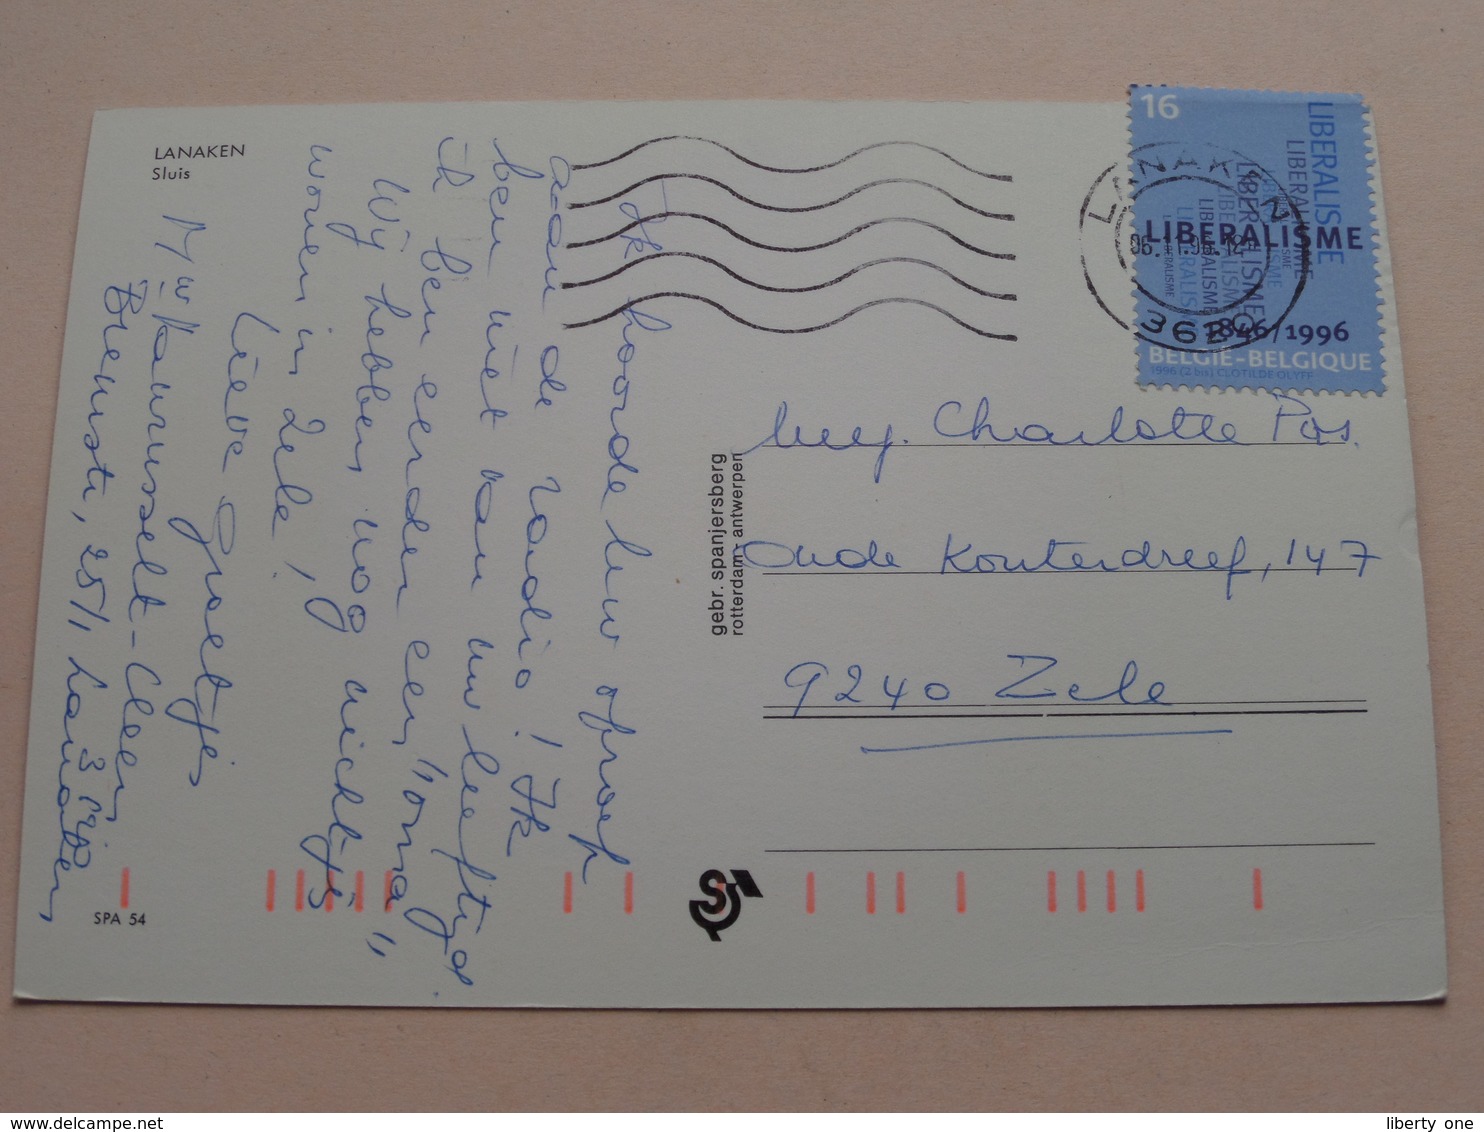 LANAKEN
Sluis
Ik hoorde uw oproep
aan de radio! Ik
ben niet van uw leeftijd.
ik ben eerder een "oma"
Wij hebben nog nichtjes
wonen in Zele,
Lieve groetjes
Mw
Biemstr, 25/1, Lanaken
3620
SPA 54
gebr. spanjersberg
rotterdam - antwerpen
16
LIBERALISME
LIBERALISME
LIBERALISME
LIBERALISME
1846/1996
BELGIE-BELGIQUE
1996 (2 bis) CLOTILDE OLYFF
LANAKEN
3620
Mej. Charlotte Pos.
Oude Kouterdreef, 147
9240 Zele
liberty one
delcampe.net